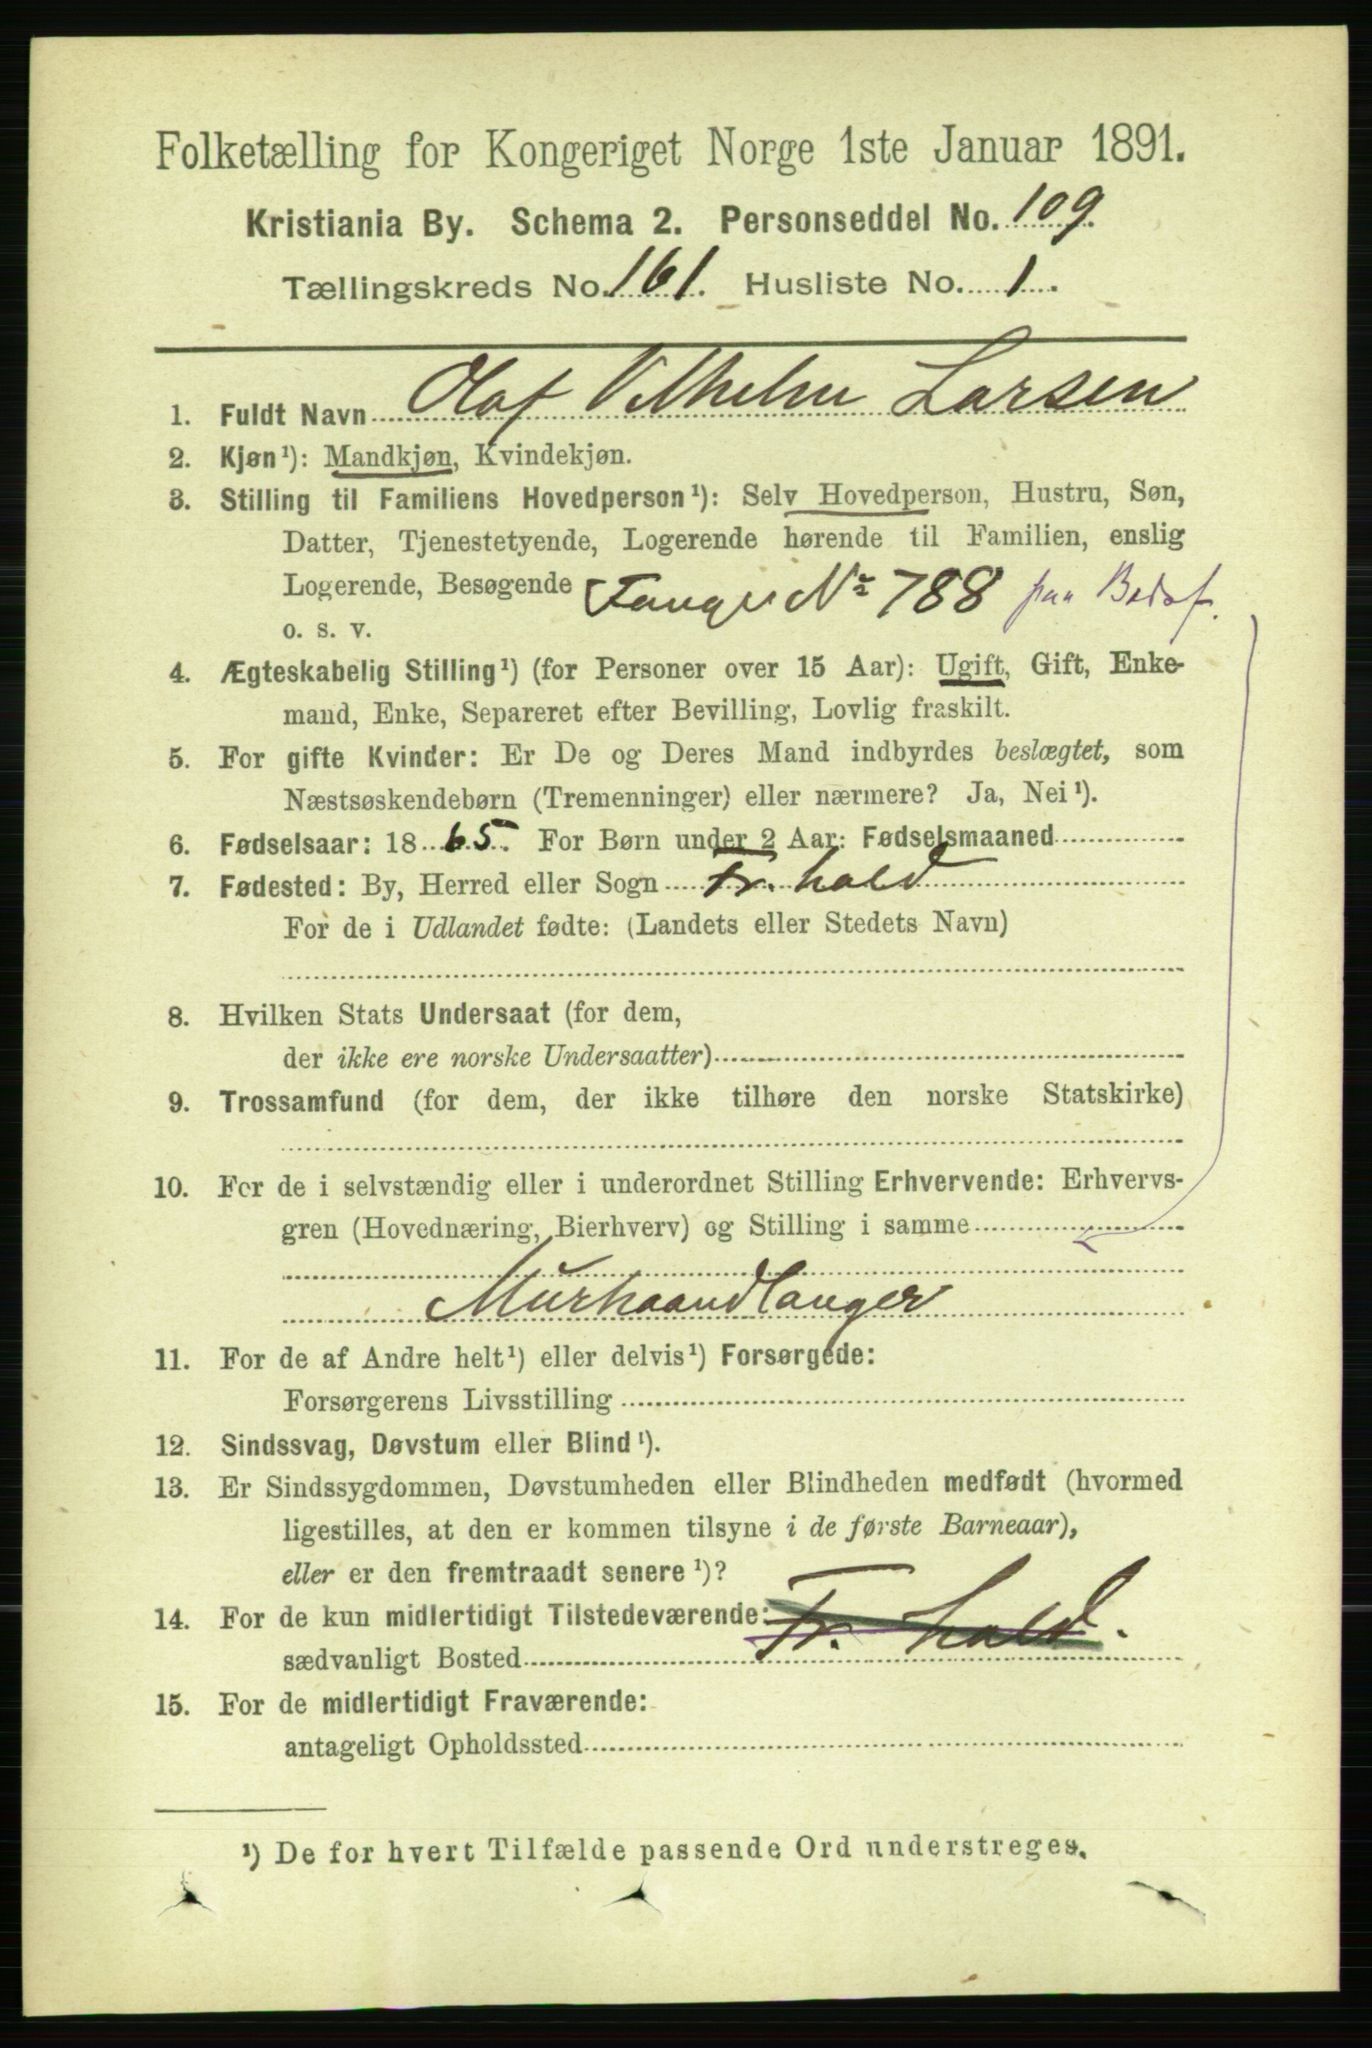 Folketælling for Kongeriget Norge 1ste Januar 1891.
Kristiania By. Schema 2. Personseddel No. 109.
Tællingskreds No. 161. Husliste No. 1.
1. Fuldt Navn Olaf Vilhelm Larsen
2. Kjøn¹): Mandkjøn, Kvindekjøn.
3. Stilling til Familiens Hovedperson¹): Selv Hovedperson, Hustru, Søn,
Datter, Tjenestetyende, Logerende hørende til Familien, enslig
Logerende, Besøgende Fange No 788 paa Bodsf.
o. s. v.
4. Ægteskabelig Stilling¹) (for Personer over 15 Aar): Ugift, Gift, Enke-
mand, Enke, Separeret efter Bevilling, Lovlig fraskilt.
5. For gifte Kvinder: Er De og Deres Mand indbyrdes beslægtet, som
Næstsøskendebørn (Tremenninger) eller nærmere? Ja, Nei¹).
6. Fødselsaar: 1865. For Børn under 2 Aar: Fødselsmaaned
7. Fødested: By, Herred eller Sogn Fr. hald
For de i Udlandet fødte: (Landets eller Stedets Navn)
8. Hvilken Stats Undersaat (for dem,
der ikke ere norske Undersaatter)
9. Trossamfund (for dem, der ikke tilhøre den norske Statskirke)
10. For de i selvstændig eller i underordnet Stilling Erhvervende: Erhvervs-
gren (Hovednæring, Bierhverv) og Stilling i samme
Murhaandlanger
11. For de af Andre helt¹) eller delvis¹) Forsørgede:
Forsørgerens Livsstilling
12. Sindssvag, Døvstum eller Blind¹).
13. Er Sindssygdommen, Døvstumheden eller Blindheden medfødt (hvormed
ligestilles, at den er kommen tilsyne i de første Barneaar),
eller er den fremtraadt senere¹)?
14. For de kun midlertidigt Tilstedeværende: Fr. hald.
sædvanligt Bosted
15. For de midlertidigt Fraværende:
antageligt Opholdssted
¹) De for hvert Tilfælde passende Ord understreges.